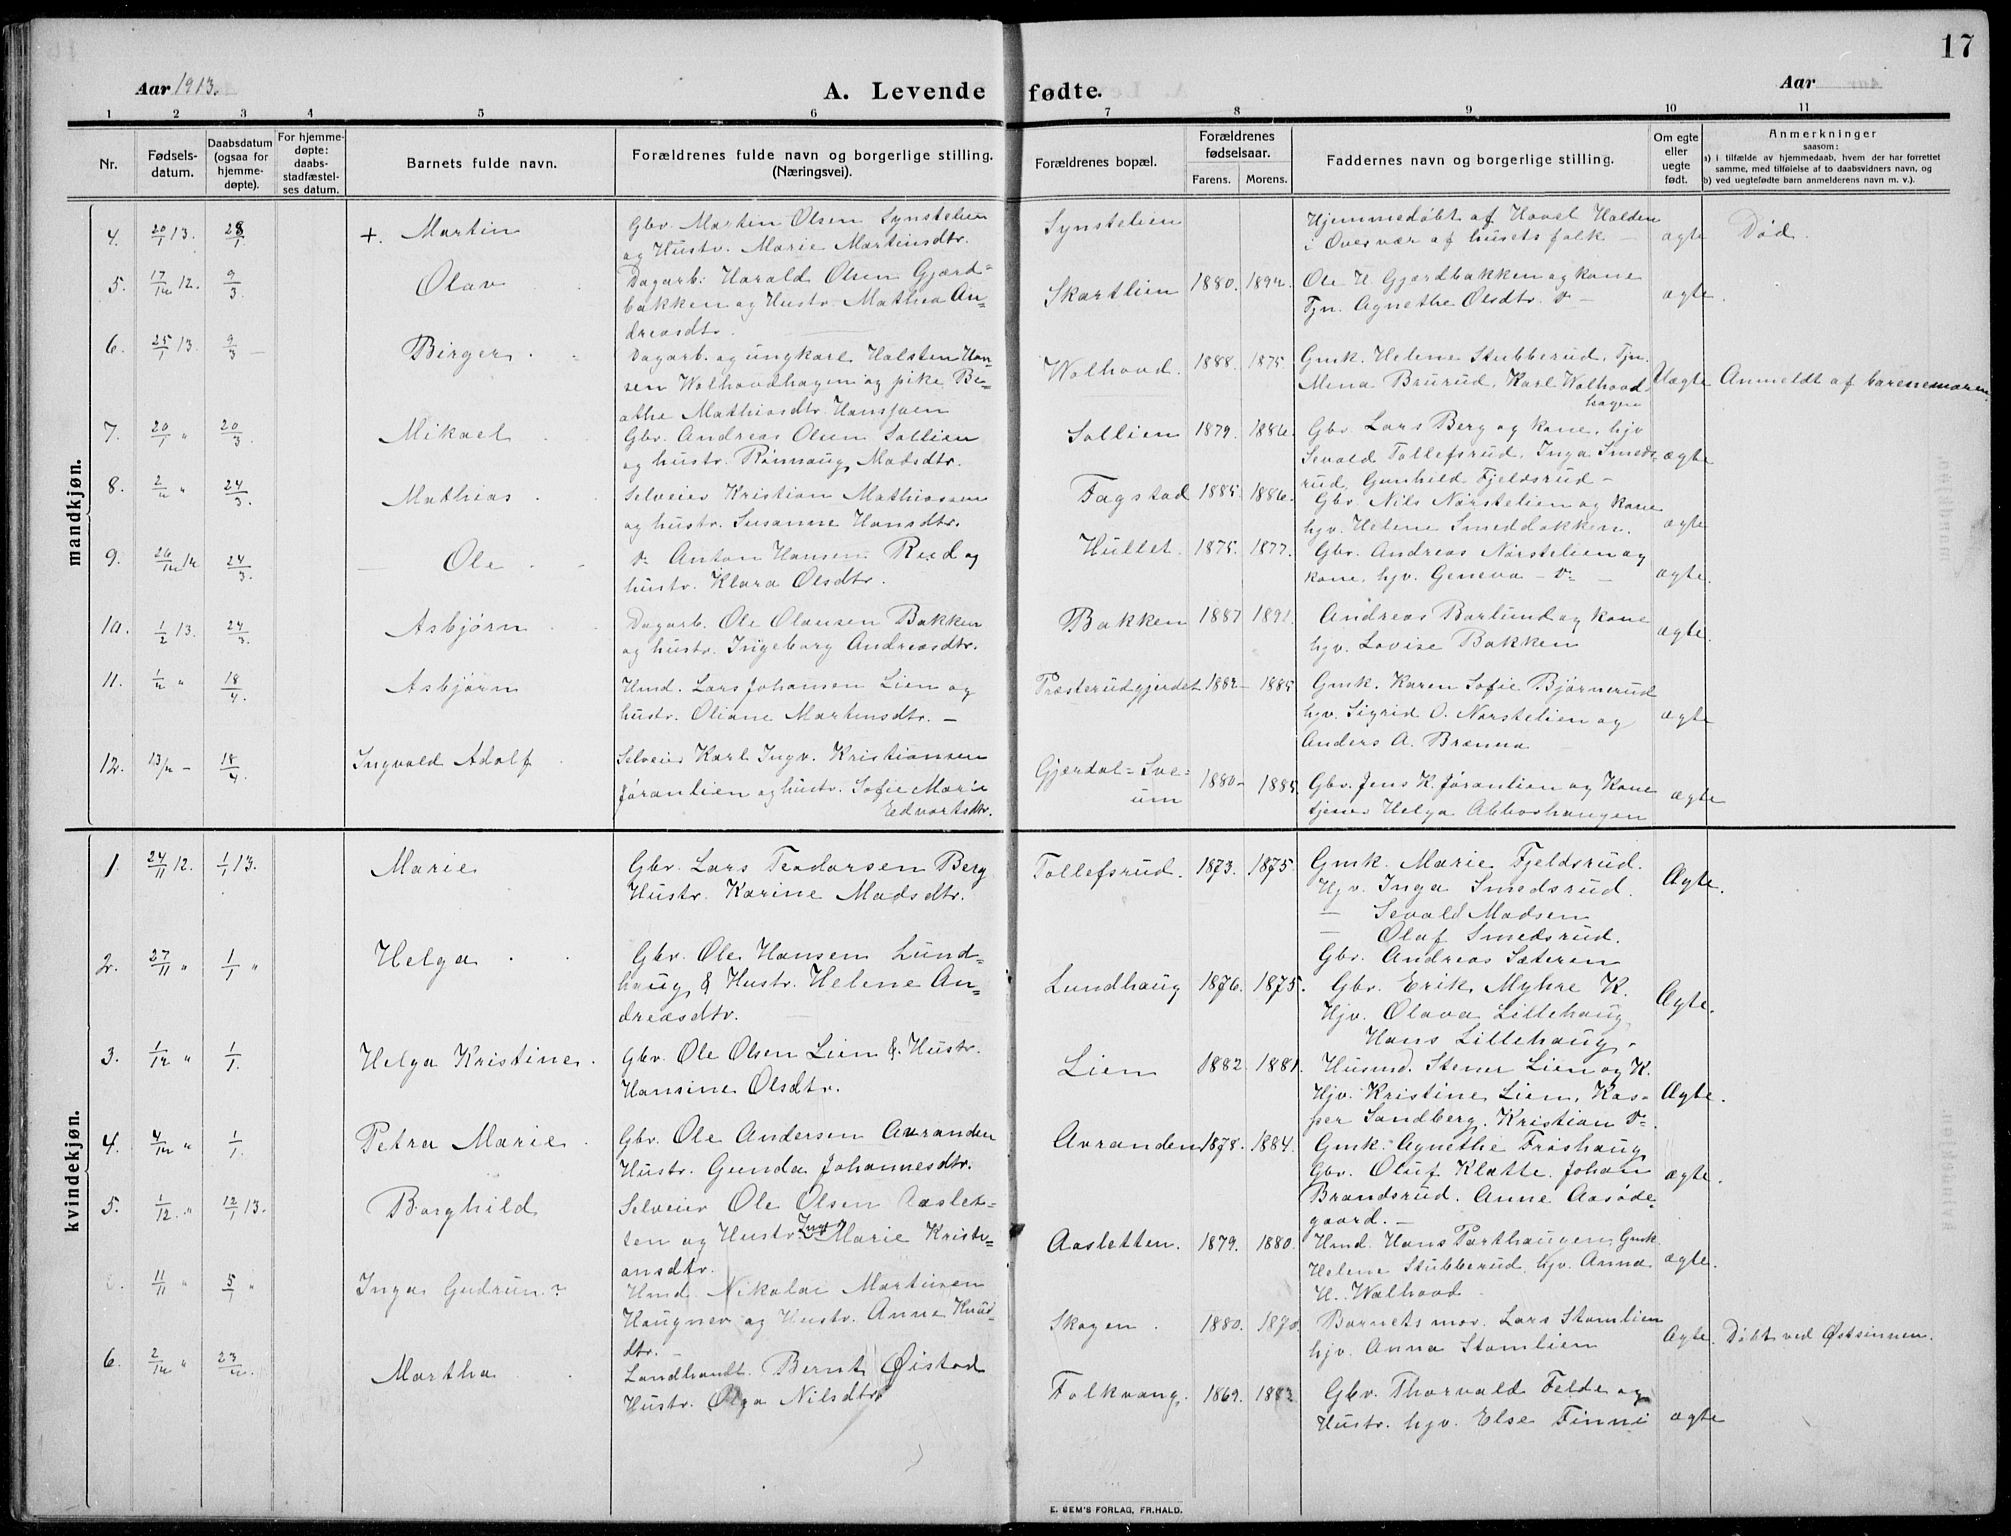 17
Aar 1913.
A. Levende fødte.
Aar
1 2 3 4 5 6 7 8 9 10 11
Nr.
Fødsels-
datum.
Daabsdatum
(ogsaa for
hjemme-
døpte).
For hjemme-
døpte:
daabs-
stadfæstel-
ses datum.
Barnets fulde navn.
Forældrenes fulde navn og borgerlige stilling.
(Næringsvei).
Forældrenes bopæl.
Forældrenes
fødselsaar.
Farens. Morens.
Faddernes navn og borgerlige stilling.
Om egte
eller
uegte
født.
Anmerkninger
saasom:
a) i tilfælde av hjemmedaab, hvem der har forrettet
samme, med tilføielse af to daabsvidners navn, og
b) ved uegtefødte barn anmelderens navn m. v.).
mandkjøn.
4. 20/1 13. 28/1 +. Martin
Gbr. Marten Olsen Synstelien
og Hustr. Marie Martinsdtr.
Synstelien
Hjemmedøbt af Hovel Holden
i Overvær af husets folk —
ægte Død.
5. 17/12 12. 9/3 Olav
Dagarb. Harald Olsen Gjærd=
bakken og Hustr. Mathea An=
dreasdtr.
Skartlien 1880. 1892.
Ole H. Gjærdbakken og kone
Tjn. Agnethe Olsdtr. do —
ægte
6. 25/1 13. 9/3 Birger
Dagarb. og ungkarl Halsten Han=
sen Wolhoodhagen og pike Be=
athe Mathiasdtr. Hansjoen
Wolhood. 1888. 1875.
Gmk. Helene Stubberud. Tjn.
Mena Brurud. Karl Wolhood=
hagen
Uægte Anmeldt af barnemoren.
7. 20/1 " 20/3. Mikael
Gbr. Andreas Olsen Sollien
og hustr. Rønnaug Madsdtr.
Sollien 1879. 1886.
Gbr. Lars Berg og kone, hjv
Sevald Tollefsrud, Inga Smeds=
rud, Gunhild Fjeldsrud —
ægte
8. 2/2 " 24/3. Mathias
Selveier Kristian Mathiassen
og hustr. Susanne Hansdtr.
Fagstad 1885 1886.
Gbr. Nils Nørstelien og kone
hjv. Helene Smeddokken.
ægte
9. 26/12 12 24/3. Ole
do Anton Hansen Rud og
hustr. Klara Olsdtr.
Hullet. 1875. 1877.
Gbr. Andreas Nørstelien og
kone, hjv. Geneva — do —
ægte.
10. 1/2 13. 24/3. Asbjørn
Dagarb. Ole Olausen Bakken
og hustr. Ingeborg Andreasdtr.
Bakken 1887 1891.
Andreas Barlund og kone
hjv. Lovise Bakken
ægte.
11. 1/2 " 18/4. Asbjørn
Hmd. Lars Johansen Lien og
hustr. Oliane Martensdtr. —
Præsterudgjerdet 1882 — 1885
Gmk. Karen Sofie Bjørnerud
hjv. Sigrid O. Nørstelien og
Anders A. Brænna
ægte
12. 13/2 — 18/4. Ingvald Adolf
Selveier Karl Ingv. Kristiansen
Jøranlien og hustr. Sofie Marie
Edvartsdtr.
Gjærdal=Sve=
um 1880 — 1885
Gbr. Jens K. Jøranlien og Kone
tjener Helga Abborhaugen
ægte
kvindekjøn.
1. 24/11 12. 1/1 13. Marie
Gbr. Lars Teodorsen Berg
Hustr. Karine Madsdtr.
Tollefsrud. 1873. 1875.
Gmk. Marie Fjeldsrud.
Hjv. Inga Smedsrud.
— Sevald Madsen
— Olaf Smedsrud.
Gbr. Andreas Sæteren
Ægte.
2. 27/11 " 1/1 " Helga
Gbr. Ole Hansen Lund=
haug & Hustr. Helene An=
dreasdtr.
Lundhaug 1876. 1875.
Gbr. Erik Myhre K.
Hjv. Olava Lillehaug
Hans Lillehaug.
Ægte.
3. 1/12 " 1/1. Helga Kristine.
Gbr. Ole Olsen Lien & Hustr.
Hansine Olsdtr.
Lien 1882. 1881.
Husmd. Stener Lien og K.
Hjv. Kristine Lien, Kas=
per Sandberg. Kristian do.
Ægte.
4. 4/12 " 1/1. Petra Marie
Gbr. Ole Andersen Avranden
Hustr. Gunda Johannesdtr.
Avranden 1878. 1884.
Gmk. Agnethe Frøshaug
Gbr. Oluf Klatte. Johan
Brandsrud. Anne Aasøde=
gaard. —
ægte.
5. 1/12. " 12/1 13. Borghild
Selveier Ole Olsen Aaslet=
ten og Hustr. Marie Kristi=
ansdtr.
Aasletten. 1879. 1880.
Hmd. Hans Parthaugen, Gmk.
Helene Stubberud, hjv. Anna
H. Wolhood
ægte.
11/11 " 5/1 " Inga Gudrun?
Hmd. Nikolai Martinsen
Haugner og Hustr. Anne Knud
dtr. —
Skogen. 1880. 1870.
Barnets mor. Lars Stomlien
hjv. Anna Stomlien
Ægte. Døbt ved Østsinnen.
6. 2/12 " 23/2. Martha
Landhandl. Bernt Øistad
Hustr. Olga Nilsdtr
Folkvang. 1869. 1883
Gbr. Thorvald Felde og
Hustr. hjv. Else Finni
ægte
E. SEM'S FORLAG, FR.HALD.